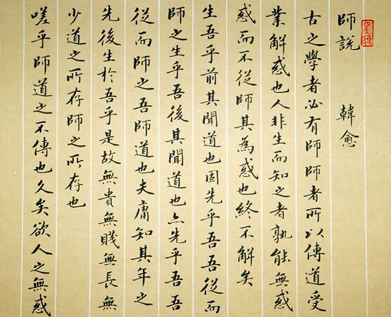 師說 韓愈
古之學者必有師師者所以傳道受
業解惑也人非生而知之者孰能無惑
惑而不從師其為惑也終不解矣
生乎吾前其聞道也固先乎吾吾從而
師之生乎吾後其聞道也亦先乎吾吾
從而師之吾師道也夫庸知其年之
先後生於吾乎是故無貴無賤無長無
少道之所存師之所存也
嗟乎師道之不傳也久矣欲人之無惑